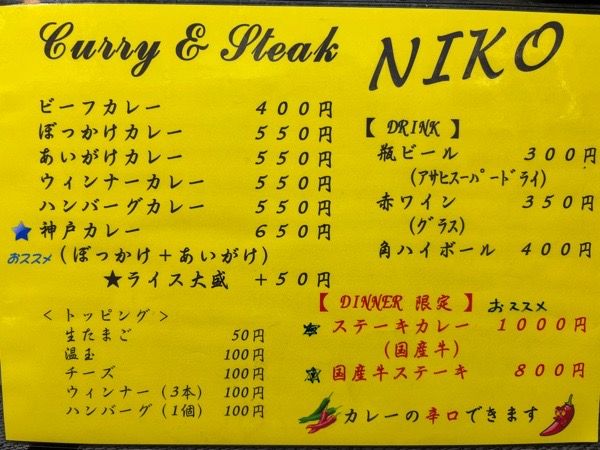 Curry & Steak
NIKO
ビーフカレー 400円
ぼっかけカレー 550円
あいがけカレー 550円
ウィンナーカレー 550円
ハンバーグカレー 550円
神戸カレー 650円
おススメ (ぼっかけ+あいがけ)
★ライス大盛 +50円
<トッピング>
生たまご 50円
温玉 100円
チーズ 100円
ウィンナー(3本) 100円
ハンバーグ(1個) 100円
【 DRINK 】
瓶ビール 300円
(アサヒスーパードライ)
赤ワイン 350円
(グラス)
角ハイボール 400円
【 DINNER 限定 】 おススメ
ステーキカレー 1000円
(国産牛)
国産牛ステーキ 800円
カレーの辛口できます